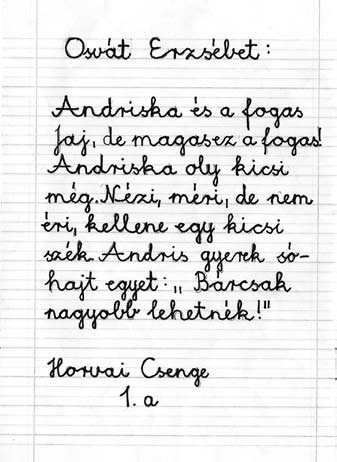 Osvát Erzsébet:
Andriska és a fogas
Jaj, de magas ez a fogas!
Andriska oly kicsi
még. Nézi, méri, de nem
éri, kellene egy kicsi
szék. Andris gyerek só-
hajt egyet: „ Bárcsak
nagyobb lehetnék!"
Horvai Csenge
1. a